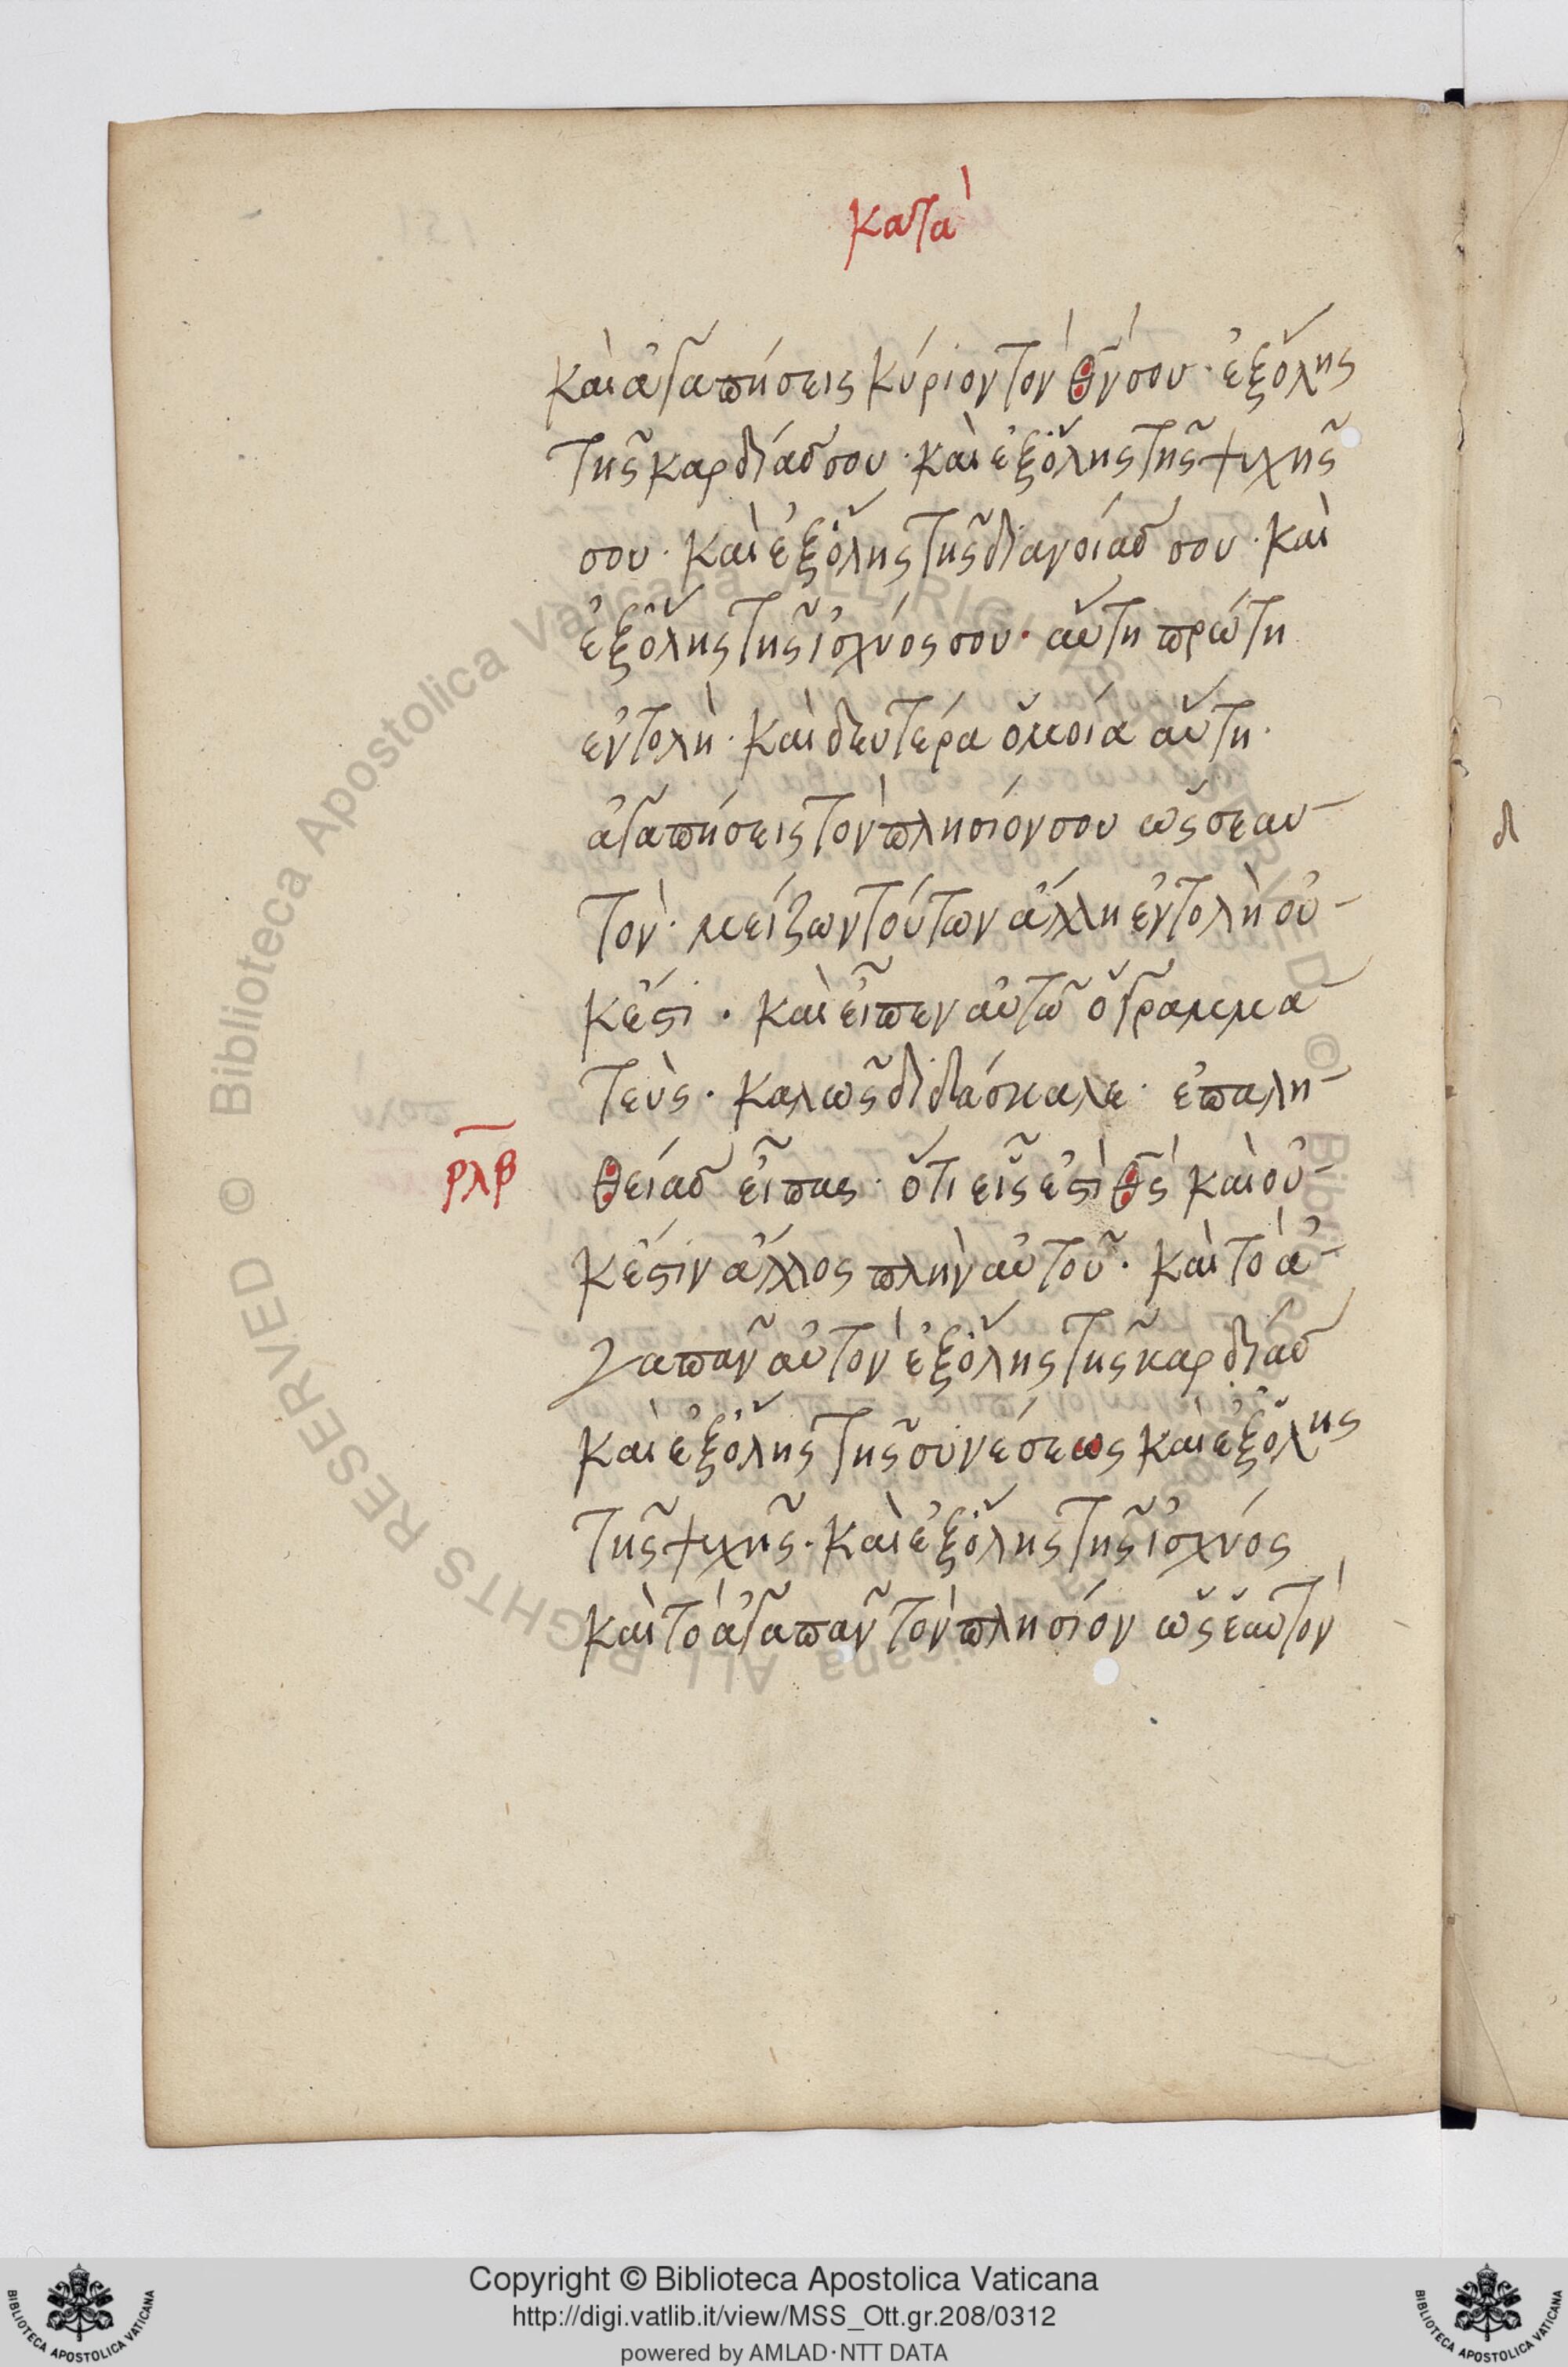 κατὰ
καὶ ἀγαπήσεις κύριον τὸν θν σου· ἐξ ὅλης
τῆς καρδίας σου· καὶ ἐξ ὅλης τῆς ψυχῆς
σου· καὶ ἐξ ὅλης τῆς διανοίας σου· καὶ
ἐξ ὅλης τῆς ἰσχύος σου· αὕτη πρώτη
ἐντολὴ· καὶ δευτέρα ὁμοία αὕτη·
ἀγαπήσεις τὸν πλησίον σου ὡς σεαυ-
τὸν· μείζων τούτων ἄλλη ἐντολὴ οὐ-
κέστι· καὶ εἶπεν αὐτῶ ὁ γραμμα-
τεὺς· καλῶς διδάσκαλε· ἐπαλη-
ρλβ
θείας εἶπας· ὅτι εἷς ἐστὶ θς καὶ οὐ-
κέστιν ἄλλος πλὴν αὐτοῦ· καὶ τὸ ἀ-
γαπᾶν αὐτὸν ἐξ ὅλης τῆς καρδίας
καὶ ἐξ ὅλης τῆς συνέσεως καὶ ἐξ ὅλης
τῆς ψυχῆς· καὶ ἐξ ὅλης τῆς ἰσχύος
καὶ τὸ ἀγαπᾶν τὸν πλησίον ὡς ἑαυτὸν
δ
© Biblioteca Apostolica Vaticana ALL RIGHTS RESERVED © Biblioteca Apostolica Vaticana ALL RIGHTS RESERVED
Copyright © Biblioteca Apostolica Vaticana
http://digi.vatlib.it/view/MSS_Ott.gr.208/0312
powered by AMLAD·NTT DATA
BIBLIOTECA APOSTOLICA VATICANA
BIBLIOTECA APOSTOLICA VATICANA